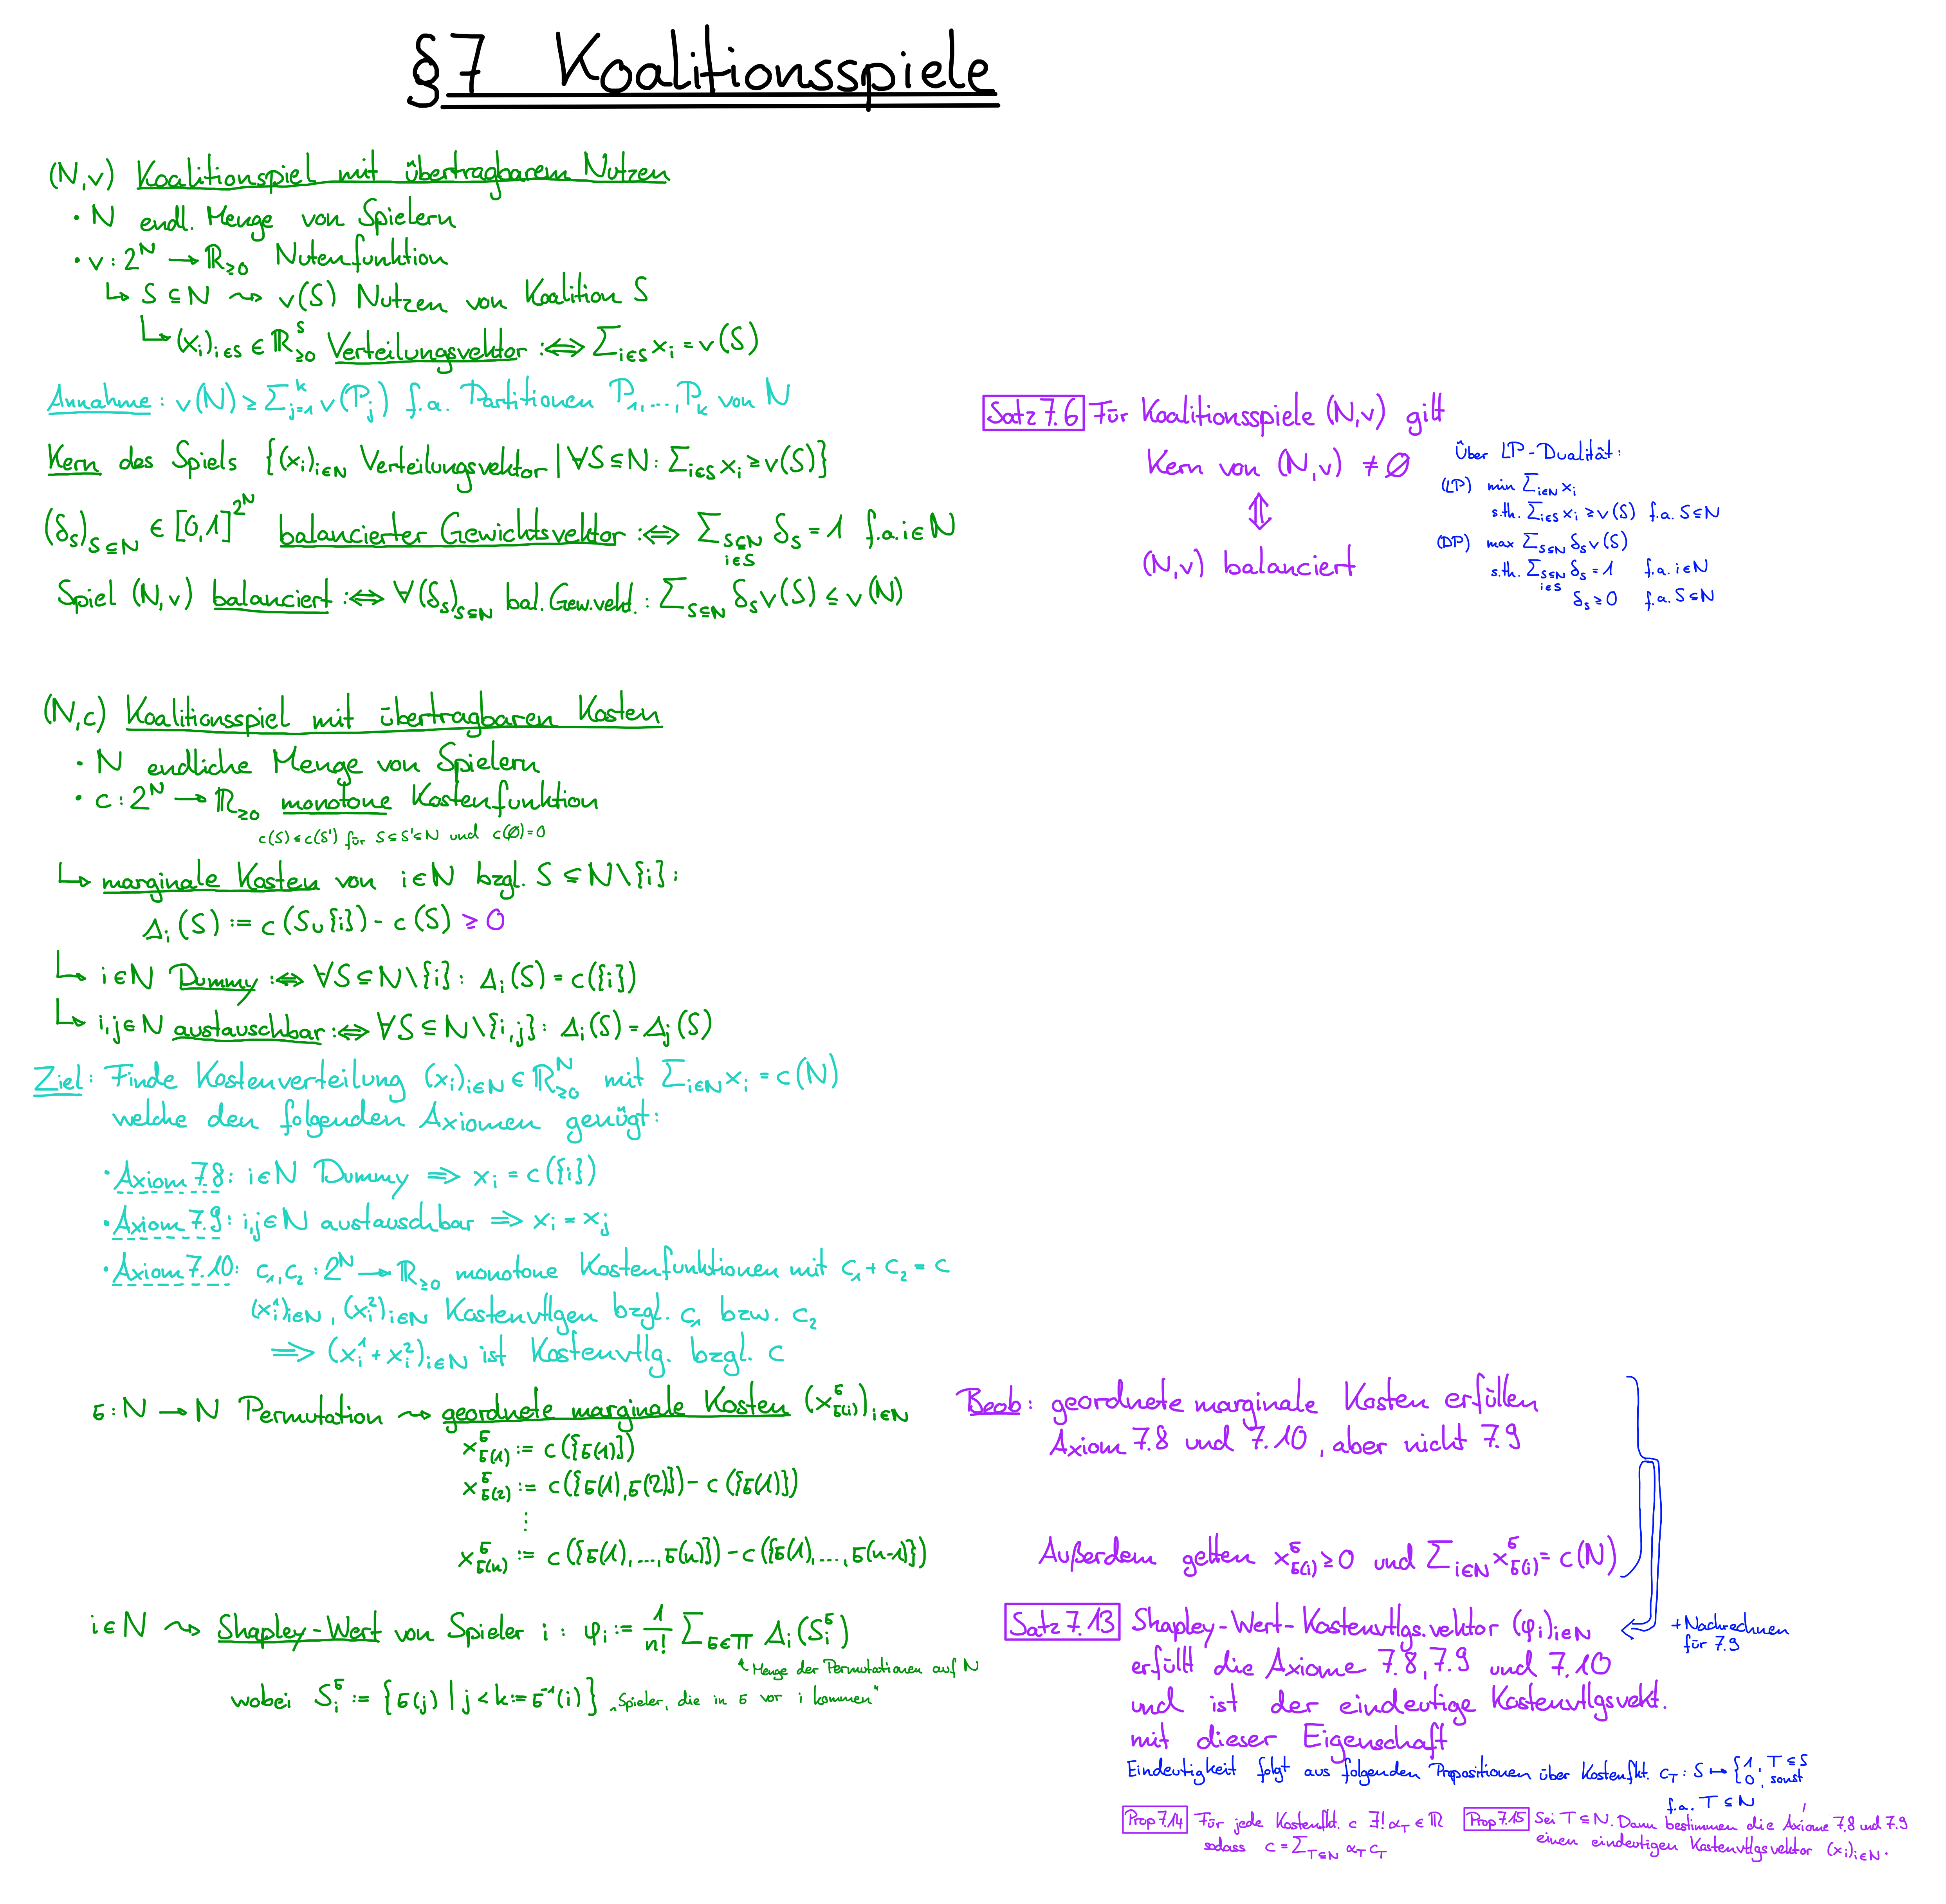 §7 Koalitionsspiele
(N,v) Koalitionspiel mit übertragbarem Nutzen
• N endl. Menge von Spielern
• v : 2^N → ℝ_≥0 Nutenfunktion
↳ S ⊆ N ⇝ v(S) Nutzen von Koalition S
↳ (x_i)_{i∈S} ∈ ℝ_≥0^S Verteilungsvektor :⟺ ∑_{i∈S} x_i = v(S)
Annahme : v(N) ≥ ∑_{j=1}^k v(P_j) f.a. Partitionen P_1,...,P_k von N
Kern des Spiels {(x_i)_{i∈N} Verteilungsvektor | ∀S⊆N : ∑_{i∈S} x_i ≥ v(S)}
(δ_S)_{S⊆N} ∈ [0,1]^{2^N} balancierter Gewichtsvektor :⟺ ∑_{S⊆N, i∈S} δ_S = 1 f.a. i∈N
Spiel (N,v) balanciert :⟺ ∀(δ_S)_{S⊆N} bal. Gew.vekt. : ∑_{S⊆N} δ_S v(S) ≤ v(N)
Satz 7.6 Für Koalitionsspiele (N,v) gilt
Kern von (N,v) ≠ ∅
⇕
(N,v) balanciert
Über LP-Dualität:
(LP) min ∑_{i∈N} x_i
s.th. ∑_{i∈S} x_i ≥ v(S) f.a. S⊆N
(DP) max ∑_{S⊆N} δ_S v(S)
s.th. ∑_{S⊆N, i∈S} δ_S = 1 f.a. i∈N
δ_S ≥ 0 f.a. S⊆N
(N,c) Koalitionsspiel mit übertragbaren Kosten
• N endliche Menge von Spielern
• c : 2^N → ℝ_≥0 monotone Kostenfunktion
c(S) ≤ c(S') für S⊆S'⊆N und c(∅)=0
↳ marginale Kosten von i∈N bzgl. S ⊆ N\{i} :
Δ_i(S) := c(S∪{i}) - c(S) ≥ 0
↳ i∈N Dummy :⟺ ∀S⊆N\{i} : Δ_i(S) = c({i})
↳ i,j∈N austauschbar :⟺ ∀S⊆N\{i,j} : Δ_i(S) = Δ_j(S)
Ziel : Finde Kostenverteilung (x_i)_{i∈N} ∈ ℝ_≥0^N mit ∑_{i∈N} x_i = c(N)
welche den folgenden Axiomen genügt:
• Axiom 7.8 : i∈N Dummy ⟹ x_i = c({i})
• Axiom 7.9 : i,j∈N austauschbar ⟹ x_i = x_j
• Axiom 7.10 : c_1,c_2 : 2^N → ℝ_≥0 monotone Kostenfunktionen mit c_1 + c_2 = c
(x_i^1)_{i∈N}, (x_i^2)_{i∈N} Kostenvtlgen bzgl. c_1 bzw. c_2
⟹ (x_i^1 + x_i^2)_{i∈N} ist Kostenvtlg. bzgl. c
σ : N → N Permutation ⇝ geordnete marginale Kosten (x_{σ(i)}^σ)_{i∈N}
x_{σ(1)}^σ := c({σ(1)})
x_{σ(2)}^σ := c({σ(1),σ(2)}) - c({σ(1)})
⋮
x_{σ(n)}^σ := c({σ(1),...,σ(n)}) - c({σ(1),...,σ(n-1)})
Beob : geordnete marginale Kosten erfüllen
Axiom 7.8 und 7.10, aber nicht 7.9
Außerdem gelten x_{σ(i)}^σ ≥ 0 und ∑_{i∈N} x_{σ(i)}^σ = c(N)
i∈N ⇝ Shapley-Wert von Spieler i : φ_i := 1/n! ∑_{σ∈Π} Δ_i(S_i^σ)
Menge der Permutationen auf N
wobei S_i^σ := {σ(j) | j < k := σ^{-1}(i)} „Spieler, die in σ vor i kommen“
Satz 7.13 Shapley-Wert-Kostenvtlgs.vektor (φ_i)_{i∈N}
erfüllt die Axiome 7.8, 7.9 und 7.10
und ist der eindeutige Kostenvtlgsvekt.
mit dieser Eigenschaft
+ Nachrechnen
für 7.9
Eindeutigkeit folgt aus folgenden Propositionen über Kostenfkt. c_T : S ↦ {1, T⊆S
0, sonst
f.a. T⊆N
Prop 7.14 Für jede Kostenfkt. c ∃! α_T ∈ ℝ
sodass c = ∑_{T⊆N} α_T c_T
Prop 7.15 Sei T⊆N. Dann bestimmen die Axiome 7.8 und 7.9
einen eindeutigen Kostenvtlgsvektor (x_i)_{i∈N}.